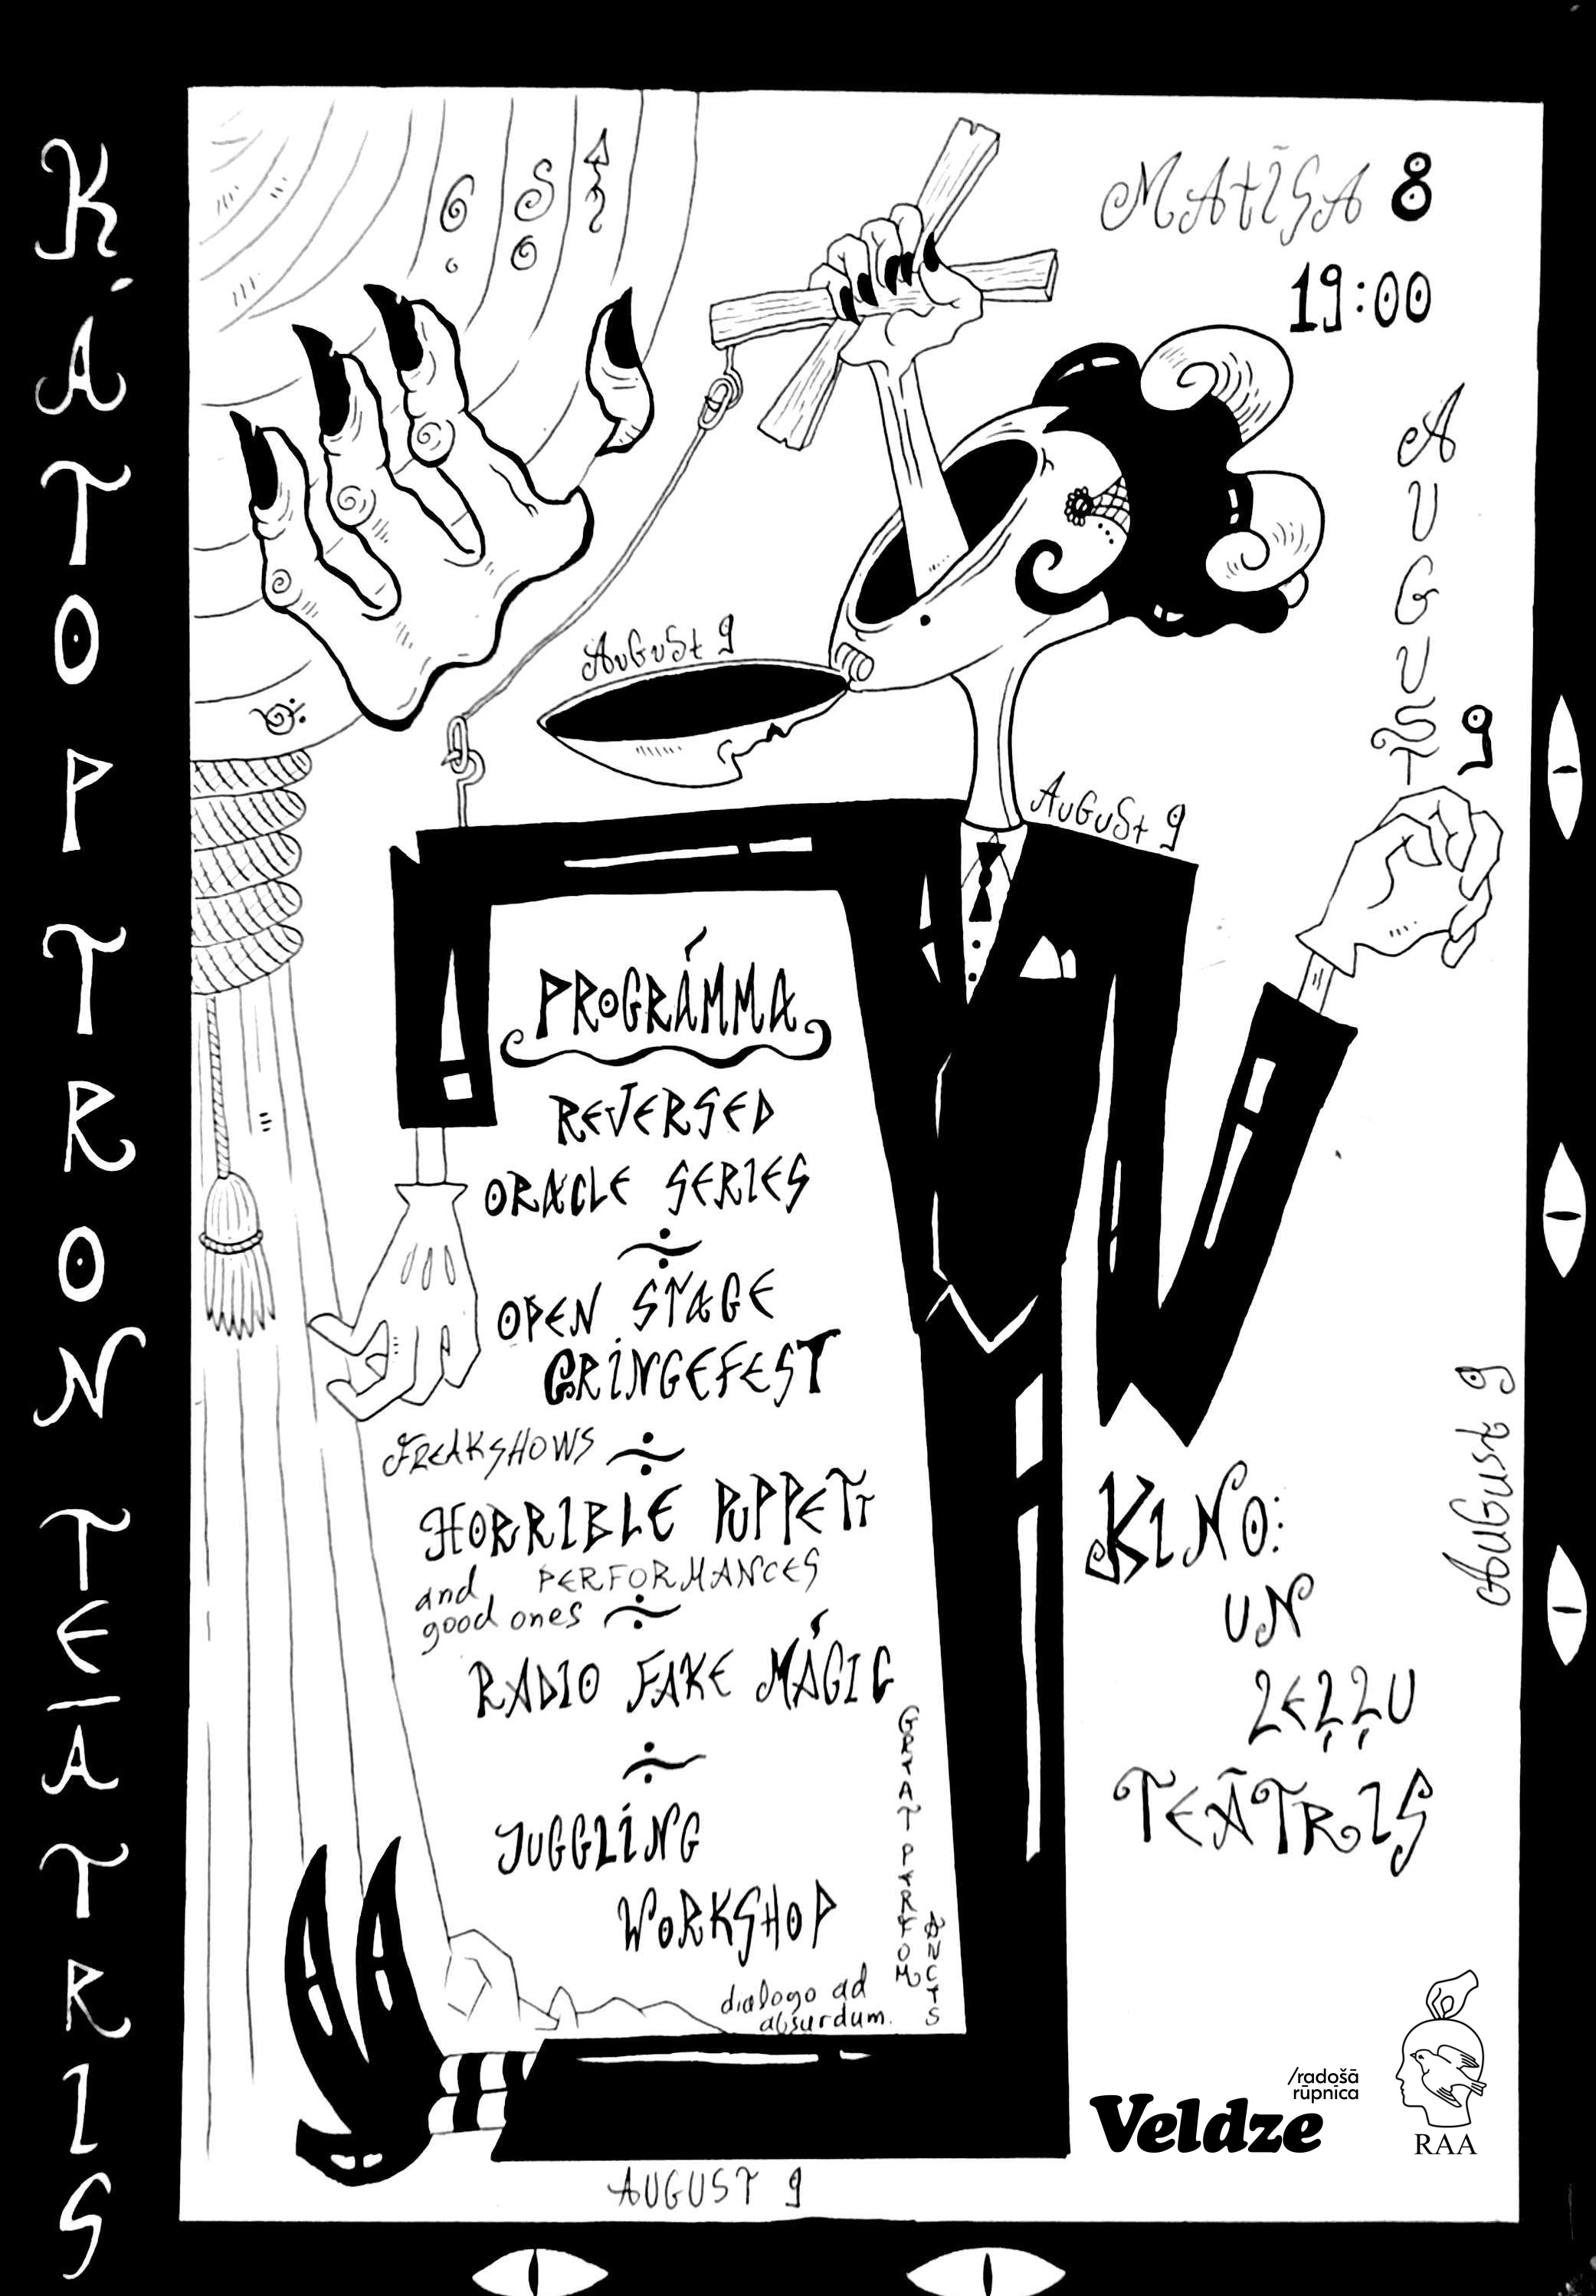 KÁTOPTRON TEĀTRIS
MATĪSA 8
19:00
AUGUST 9
AUGUST 9
AUGUST 9
PROGRÁMMA
REVERSED
ORACLE SERIES
OPEN STAGE
CRINGEFEST
FREAKSHOWS
HORRIBLE PUPPETT
and PERFORMANCES
good ones
RADIO FAKE MÁGIC
JUGGLING
WORKSHOP
dialogo ad
absurdum.
AUGUST 9
KINO:
UN
LEĻĻU
TEĀTRIS
/radošā
rūpnīca
Veldze
RAA
AUGUST 9